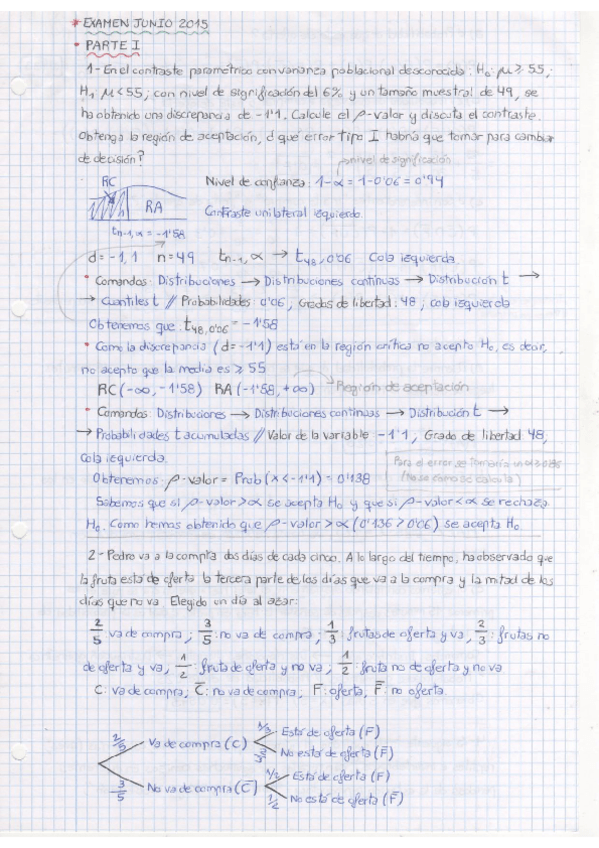 * EXAMEN JUNIO 2015
• PARTE I
1- En el contraste paramétrico con varianza poblacional desconocida: H₀: μ ≥ 55;
H₁ μ < 55; con nivel de significación del 6% y un tamaño muestral de 49, se
ha obtenido una discrepancia de -1'1. Calcule el p-valor y discuta el contraste.
Obtenga la región de aceptación, ¿ qué error tipo I habría que tomar para cambiar
de decisión?
nivel de significación
RC
RA
tn-1,α = -1'58
Nivel de confianza: 1-α = 1-0'06 = 0'94
Contraste unilateral izquierdo.
d = -1,1 n = 49 tn-1,α → t48,0'06 Cola izquierda.
* Comandos: Distribuciones → Distribuciones continuas → Distribución t →
→ Cuantiles t // Probabilidades: 0'06, Grados de libertad: 48; cola izquierda
Obtenemos que: t48,0'06 = -1'58
* Como la discrepancia (d = -1'1) está en la región crítica no acepto H₀, es decir,
no acepto que la media es ≥ 55
RC (-∞, -1'58) RA (-1'58, +∞) Región de aceptación
* Comandos: Distribuciones → Distribuciones continuas → Distribución t →
→ Probabilidades t acumuladas // Valor de la variable: -1'1, Grado de libertad 48,
Cola izquierda.
Para el error se tomaría un
(No se como se calcula)
Obtenemos: p-valor = Prob (x < -1'1) = 0'138
Sabemos que si p-valor > α se acepta H₀ y que si p-valor < α se rechaza
H₀. Como hemos obtenido que p-valor > α (0'136 > 0'06) se acepta H₀
2- Pedro va a la compra dos días de cada cinco. A lo largo del tiempo, ha observado que
la fruta está de oferta la tercera parte de los días que va a la compra y la mitad de los
días que no va. Elegido un día al azar:
2/5 : va de compra; 3/5 : no va de compra; 1/3 : frutas de oferta y va, 2/3 : frutas no
de oferta y va, 1/2 : fruta de oferta y no va; 1/2 : fruta no de oferta y no va
C: va de compra; C̅: no va de compra, F: oferta, F̅: no oferta.
2/5 Va de compra (C)
1/3 Está de oferta (F)
2/3 No está de oferta (F̅)
3/5 No va de compra (C̅)
1/2 Está de oferta (F)
1/2 No está de oferta (F̅)